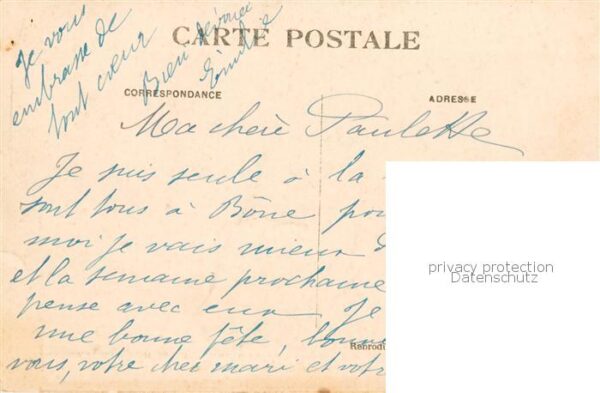 Je vous
embrasse de
tout cœur
Bien
Emilie
CARTE POSTALE
CORRESPONDANCE
ADRESSE
Ma chère Paulette
Je suis seule à la
sont tous à Bône pou
moi je vais mieux
et la semaine prochaine
pense avec eux Je
une bonne fête, bonne
Reprodu
vous, votre cher mari et votr
privacy protection
Datenschutz